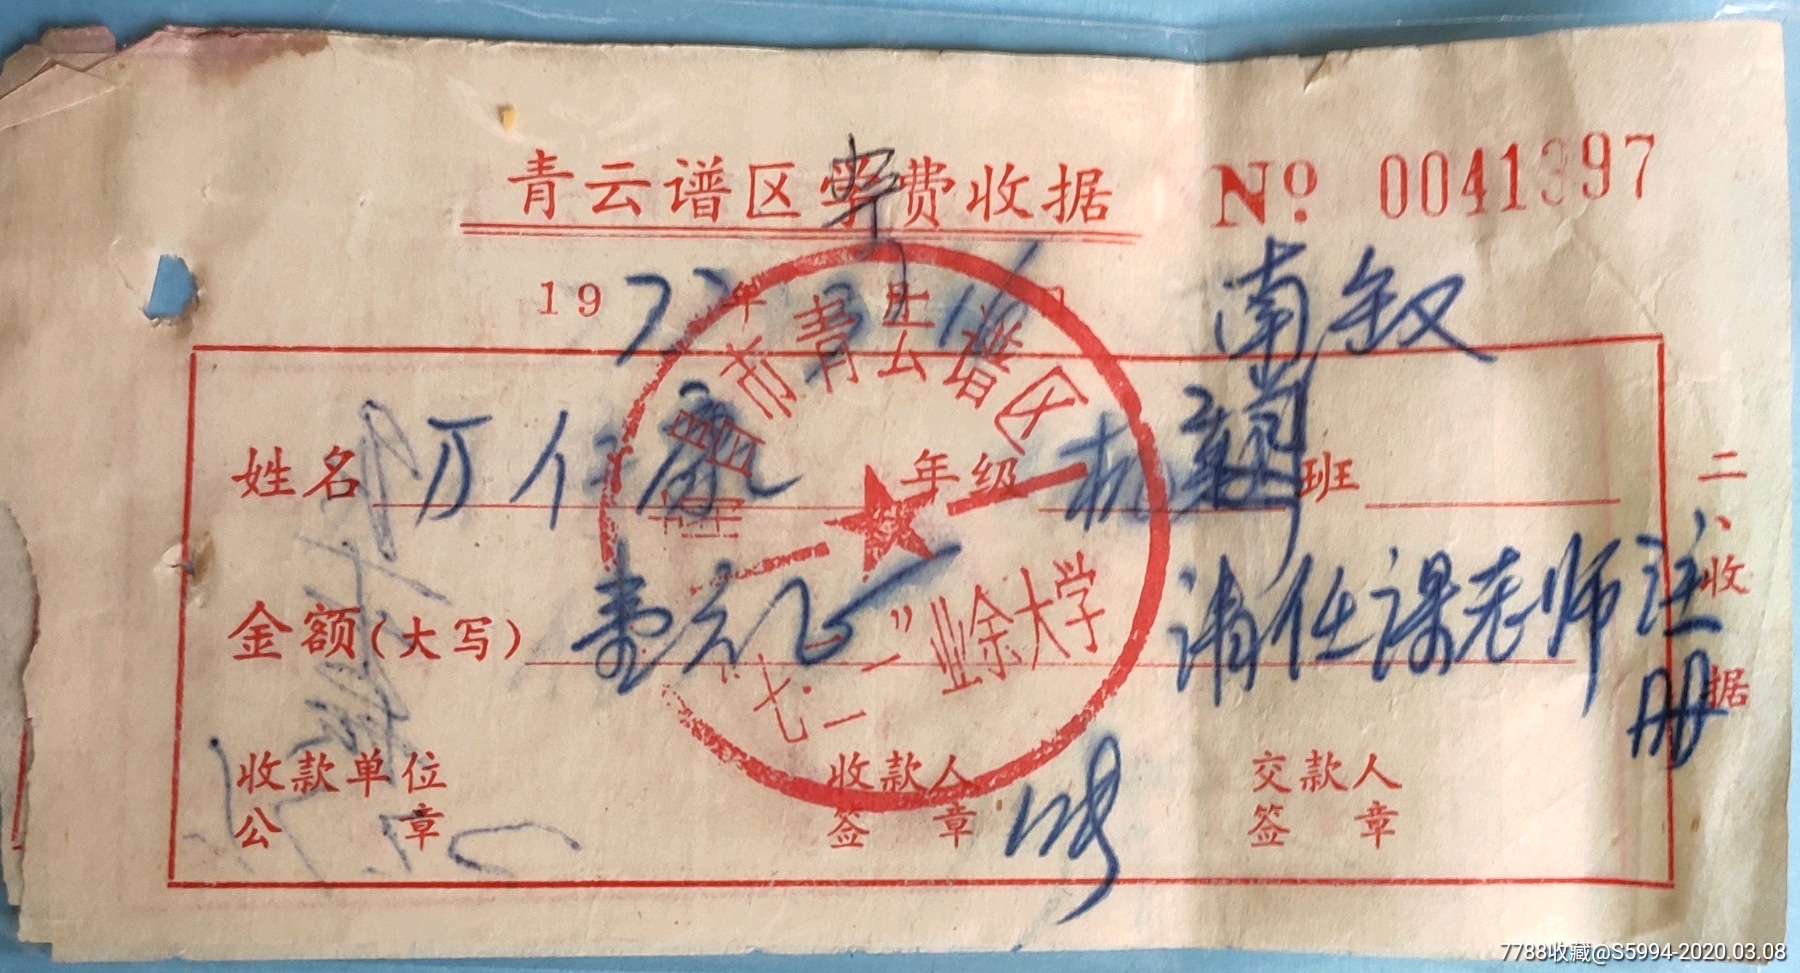 青云谱区学费收据 № 0041397
1977年 月16日
南钗
姓名 万仁康 年级 机 班
金额(大写) 壹元正 请任课老师注册
收款单位公章 收款人签章 交款人签章
二、收据
市青云谱区
“七·二一”业余大学
7788收藏@S5994-2020.03.08